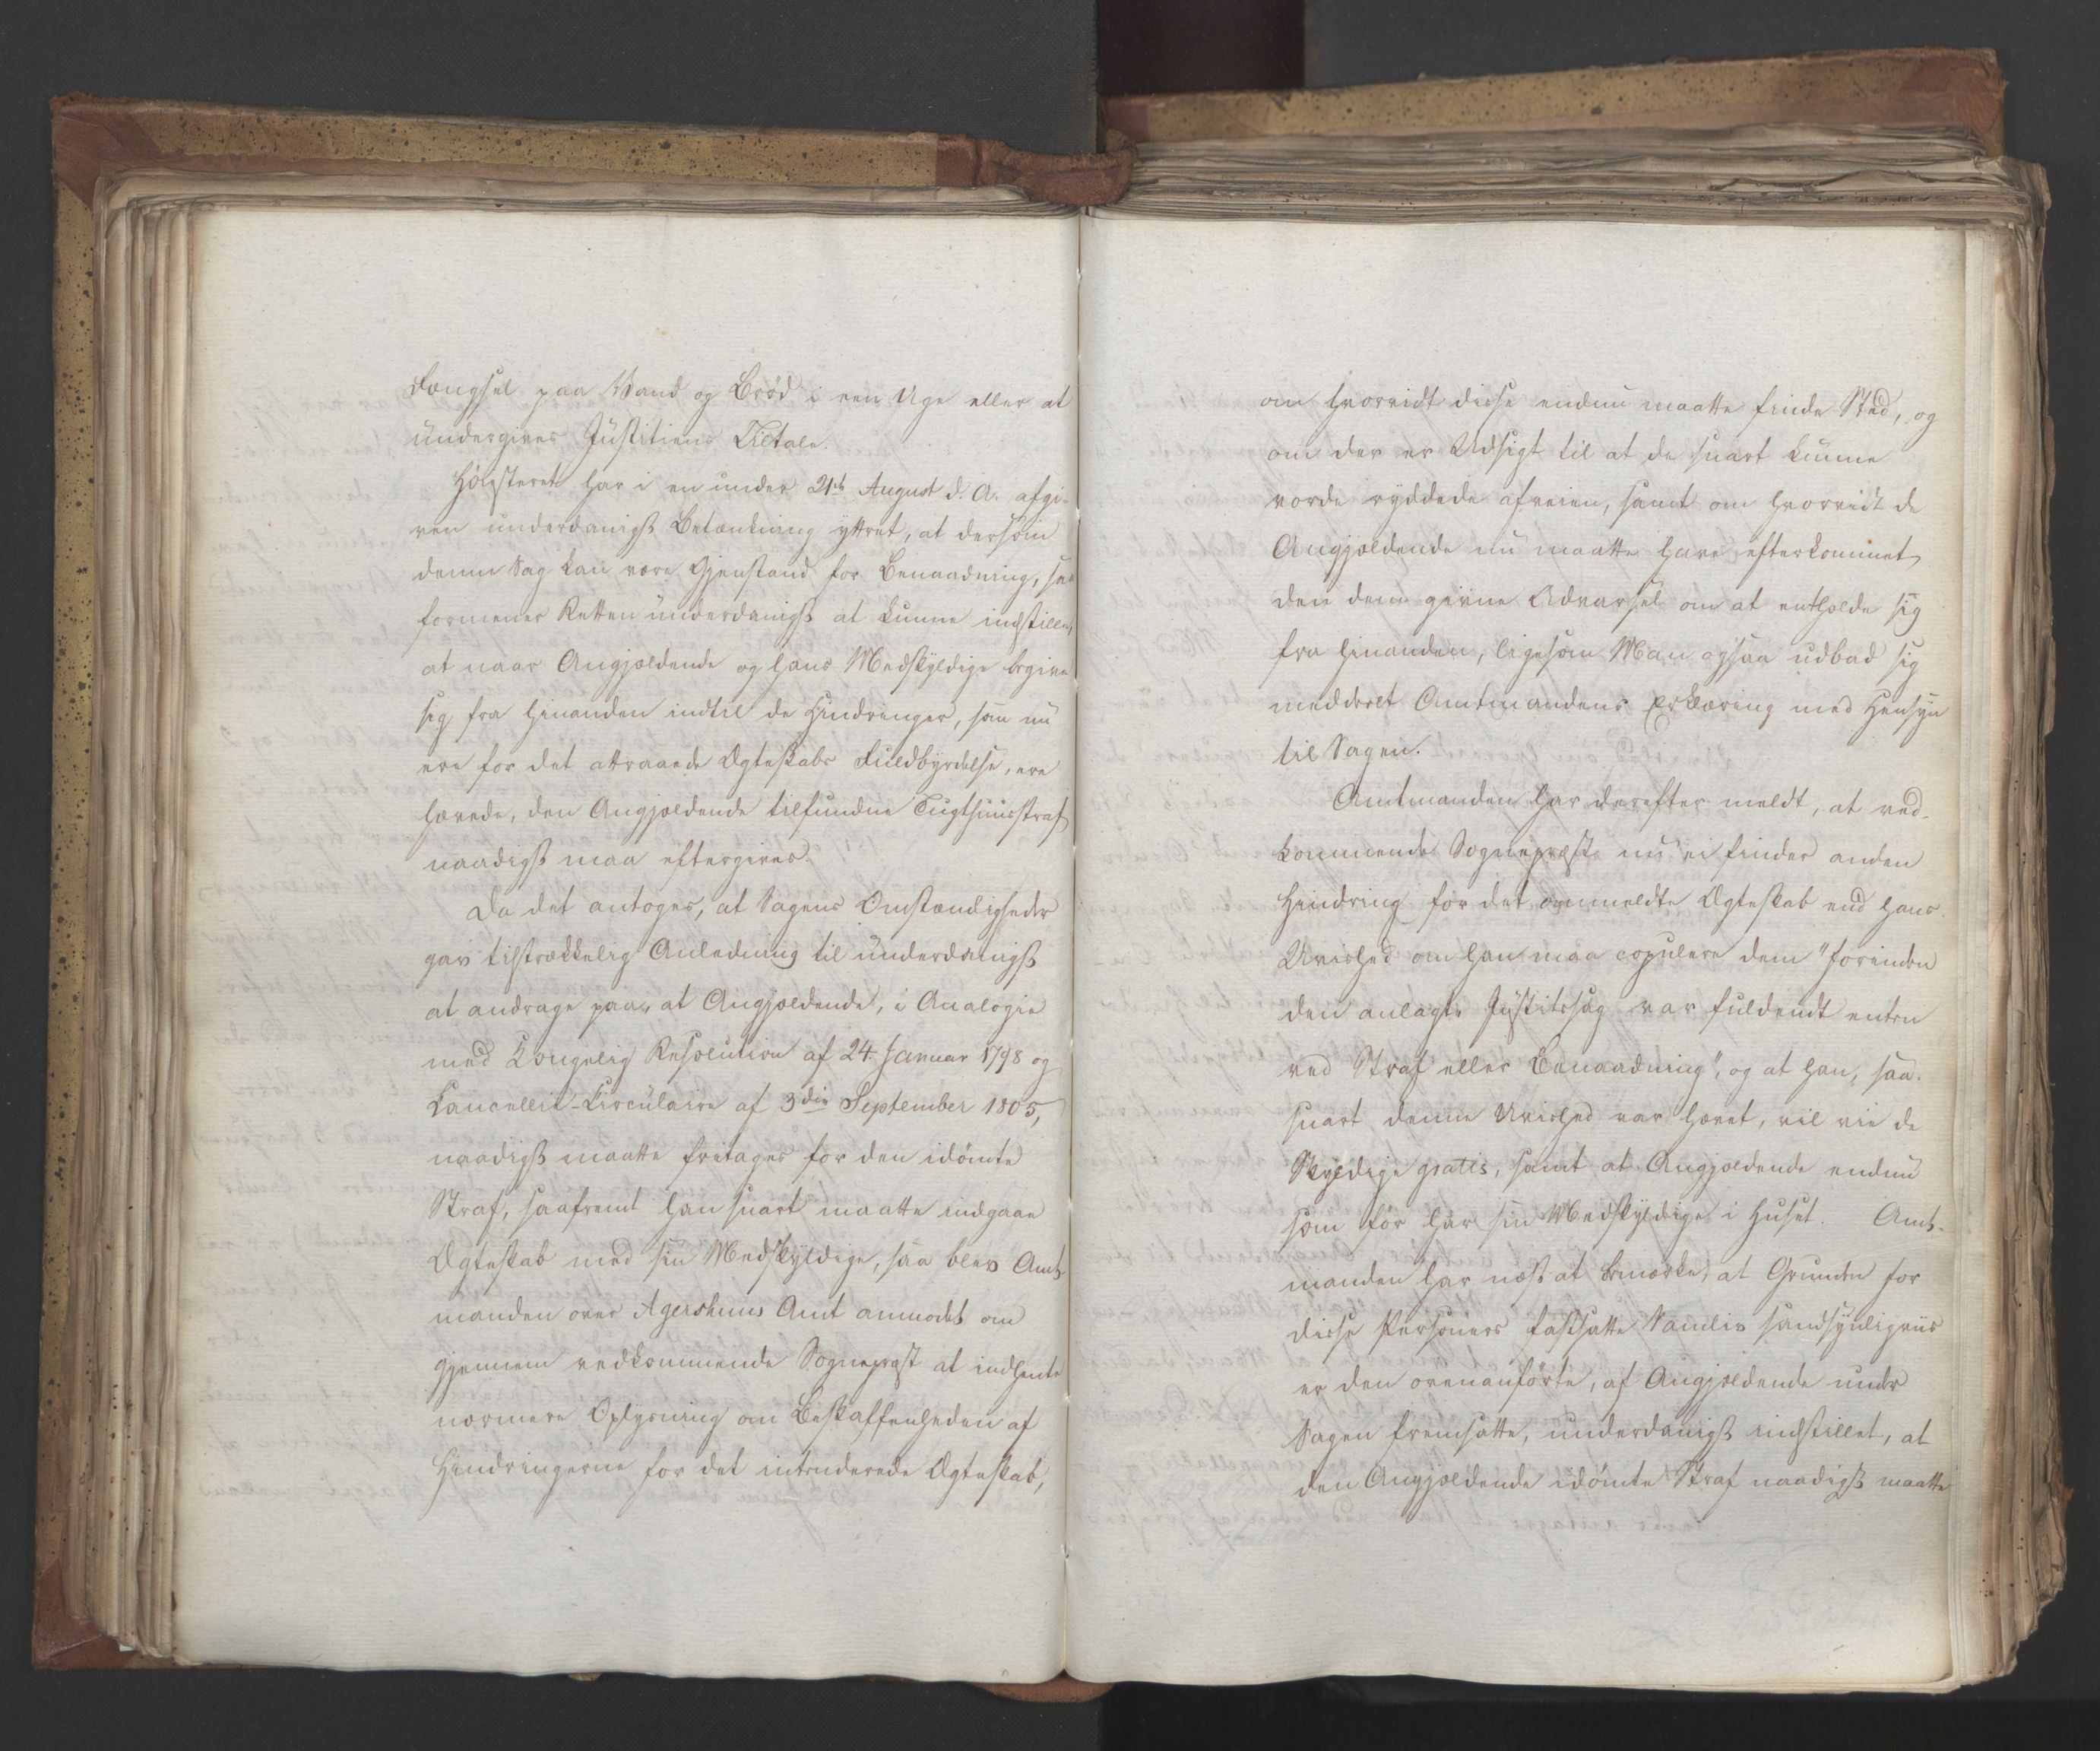 Fængsel paa Vand og Brød i een Uge eller at
undergives Justitiens Tiltale.
Höiesteret har i en under 21de August d. A. afgi-
ven underdanigst Betænkning yttret, at dersom
denne Sag kan være Gjenstand for Benaadning, saa
formener Retten underdanigst at kunne indstille,
at naar Angjældende og hans Medskyldige begive
sig fra hinanden indtil de Hindringer, som nu
ere for det attraaede Ægteskabs Fuldbyrdelse, ere
hævede, den Angjældende tilfundne Tugthuusstraf
naadigst maa eftergives.
Da det antoges, at Sagens Omstændigheder
gav tilstrækkelig Anledning til underdanigst
at andrage paa, at Angjældende, i Analogie
med Kongelig Resolution af 24. Januar 1798 og
Cancellie-Circulaire af 3die September 1805,
naadigst maatte fritages for den idömte
Straf, saafremt han snart maatte indgaae
Ægteskab med sin Medskyldige, saa blev Amt-
manden over Agershuus Amt anmodet om
gjennem vedkommende Sognepræst at indhente
nærmere Oplysning om Beskaffenheden af
Hindringerne for det intenderede Ægteskab,
om hvorvidt disse endnu maatte finde Sted, og
om der er Udsigt til at de snart kunne
vorde ryddede afveien, samt om hvorvidt de
Angjældende nu maatte have efterkommet
den dem givne Advarsel om at entholde sig
fra hinanden, ligesom Man ogsaa udbad sig
meddeelt Amtmandens Erklæring med Hensyn
til Sagen.
Amtmanden har derefter meldt, at ved-
kommende Sognepræst nu ei finder anden
Hindring for det ommeldte Ægteskab end hans
Uvished om han maa copulere dem "forinden
den anlagte Justitssag var fuldendt enten
ved Straf eller Benaadning", og at han, saa-
snart denne Uvished var hævet, vil vie de
Skyldige gratis, samt at Angjældende endnu
som för har sin Medskyldige i Huset. Amt-
manden har næst at bemærke, at Grunden for
disse Personers fastsatte Samliv sandsynligviis
er den ovenanförte, af Angjældende under
Sagen fremsatte, underdanigst indstillet, at
den Angjældende idömte Straf naadigst maatte